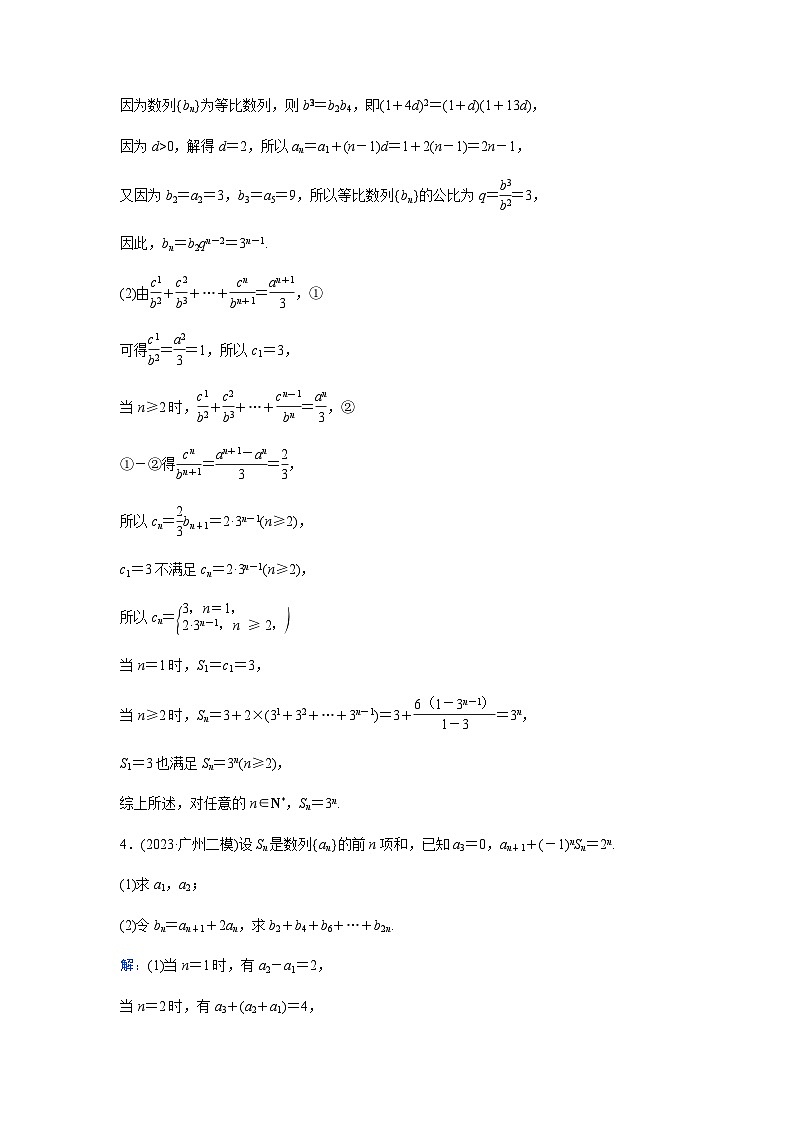 因为数列{bₙ}为等比数列，则 b³=b₂b₄，即(1+4d)²=(1+d)(1+13d)，
因为 d>0，解得 d=2，所以 aₙ=a₁+(n-1)d=1+2(n-1)=2n-1，
又因为 b₂=a₂=3，b₃=a₅=9，所以等比数列{bₙ}的公比为 q=b³/b²=3，
因此，bₙ=b₂qⁿ⁻²=3ⁿ⁻¹.
(2)由c¹/b²+c²/b³+…+cⁿ/bⁿ⁺¹=aⁿ⁺¹/3，①
可得c¹/b²=a²/3=1，所以 c₁=3，
当 n≥2 时，c¹/b²+c²/b³+…+cⁿ⁻¹/bⁿ=aⁿ/3，②
①-②得cⁿ/bⁿ⁺¹=(aⁿ⁺¹-aⁿ)/3=2/3，
所以 cₙ=2/3bₙ₊₁=2·3ⁿ⁻¹(n≥2)，
c₁=3 不满足 cₙ=2·3ⁿ⁻¹(n≥2)，
所以 cₙ={3，n=1，
2·3ⁿ⁻¹，n ≥ 2，)
当 n=1 时，S₁=c₁=3，
当 n≥2 时，Sₙ=3+2×(3¹+3²+…+3ⁿ⁻¹)=3+6（1-3ⁿ⁻¹）/1-3=3ⁿ，
S₁=3 也满足 Sₙ=3ⁿ(n≥2)，
综上所述，对任意的 n∈N*，Sₙ=3ⁿ.
4．(2023·广州二模)设 Sₙ是数列{aₙ}的前 n 项和，已知 a₃=0，aₙ₊₁+(-1)ⁿSₙ=2ⁿ.
(1)求 a₁，a₂；
(2)令 bₙ=aₙ₊₁+2aₙ，求 b₂+b₄+b₆+…+b₂ₙ.
解：(1)当 n=1 时，有 a₂-a₁=2，
当 n=2 时，有 a₃+(a₂+a₁)=4，